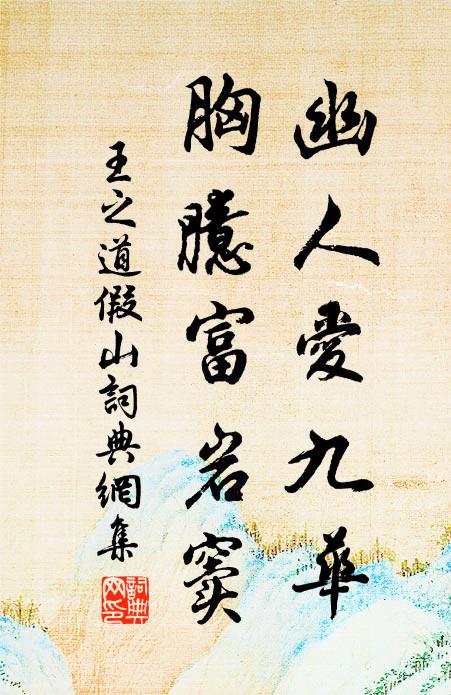 幽人愛九華
胸臆富岩竇
王之道假山詞典網集
詞典網印